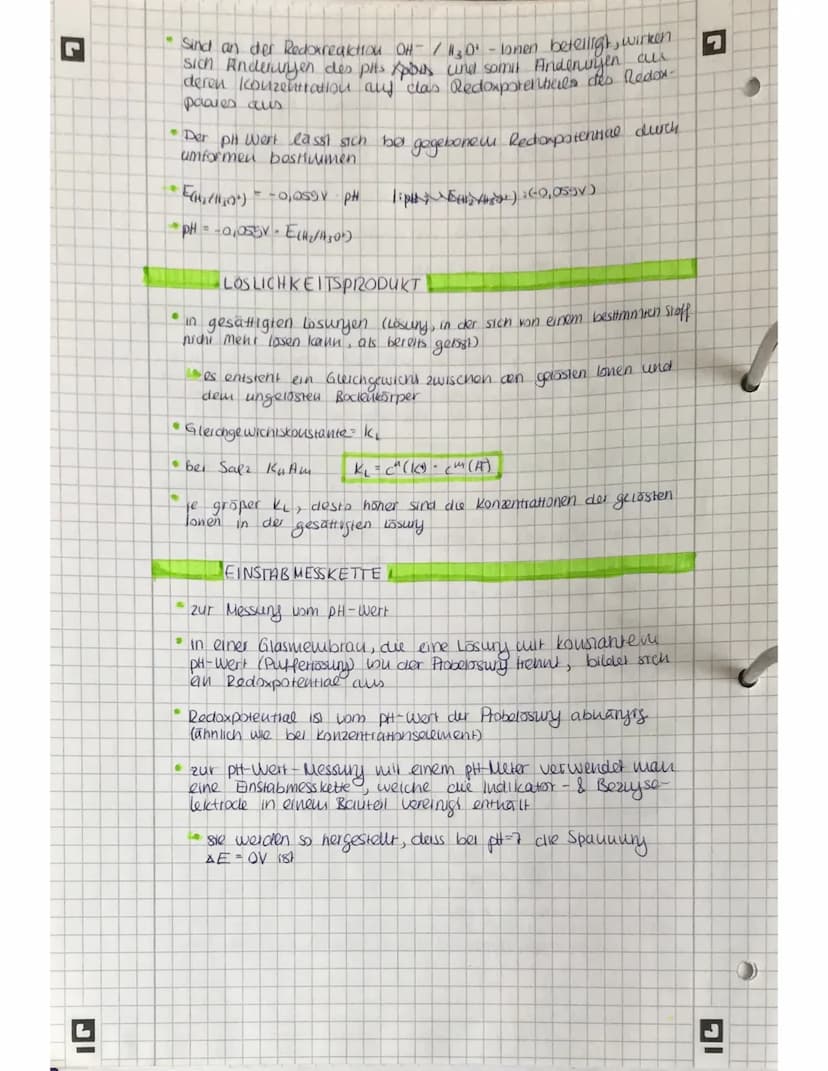 • sind an der Redoxreaktion OH⁻ / H₃O⁺ - Ionen beteiligt, wirken
sich Änderungen des pHs und somit Änderungen an
deren Konzentration auf das Redoxpotential des Redox-
paares aus
• Der pH Wert lässt sich bei gegebenem Redoxpotential durch
umformen bestimmen
• E(H₂/H₃O⁺) = -0,059V · pH |: (-0,059V)
• pH = -0,059V · E(H₂/H₃O⁺)
LÖSLICHKEITSPRODUKT
• in gesättigten Lösungen (Lösung, in der sich von einem bestimmten Stoff
nicht mehr lösen kann, als bereits gelöst)
↳ es entsteht ein Gleichgewicht zwischen den gelösten Ionen und
dem ungelösten Bodenkörper
• Gleichgewichtskonstante = KL
• bei Salz KnAm KL = cⁿ(K⁺) · cᵐ(A⁻)
• je größer KL, desto höher sind die Konzentrationen der gelösten
Ionen in der gesättigten Lösung
EINSTABMESSKETTE
• zur Messung vom pH-Wert
• in einer Glasmembran, die eine Lösung mit konstantem
pH-Wert (Pufferlösung) von der Probelösung trennt, bildet sich
ein Redoxpotential aus
• Redoxpotential ist vom pH-Wert der Probelösung abhängig
(ähnlich wie bei Konzentrationselement)
• zur pH-Wert-Messung mit einem pH-Meter verwendet man
eine Einstabmesskette, welche die Indikator- & Bezugse-
lektrode in einem Bauteil vereinigt enthält
↳ sie werden so hergestellt, dass bei pH=7 die Spannung
ΔE = 0V ist